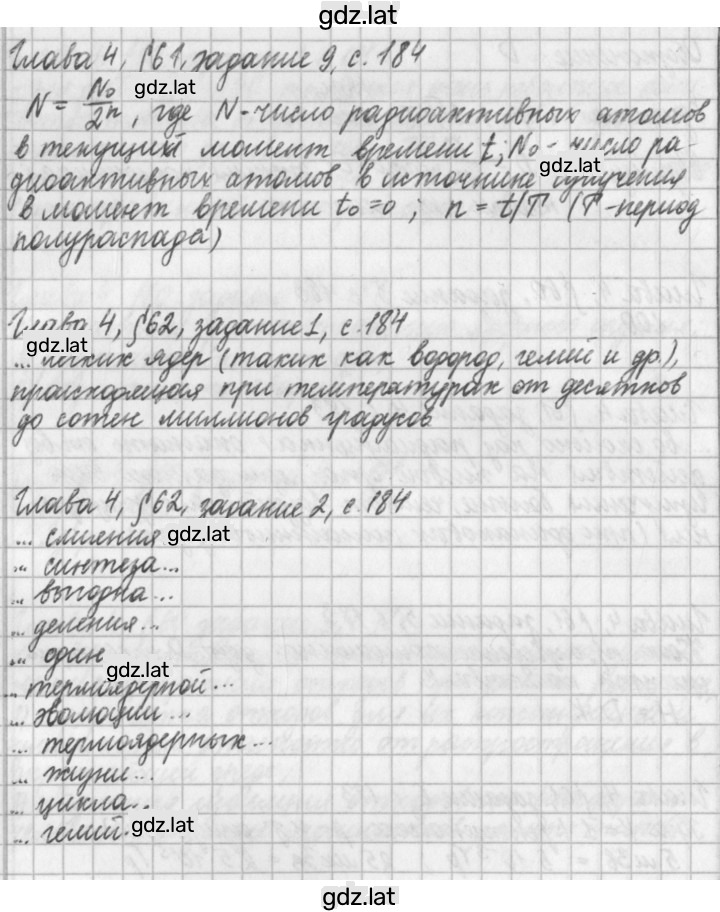 gdz.lat
Глава 4, §61, задание 9, с. 184
N = N₀/2ⁿ, где N - число радиоактивных атомов
gdz.lat
в текущий момент времени t; N₀ - число ра-
gdz.lat
диоактивных атомов в источнике излучения
в момент времени t₀ = 0; n = t/T (T - период
полураспада)
Глава 4, §62, задание 1, с. 184
gdz.lat
... легких ядер (таких как водород, гелий и др.),
происходящая при температурах от десятков
до сотен миллионов градусов
Глава 4, §62, задание 2, с. 184
... слияния gdz.lat
... синтеза...
... выгодна...
... деления...
... один
gdz.lat
... термоядерной...
... эволюции...
... термоядерных...
... жизни...
... цикла...
... гелий. gdz.lat
gdz.lat